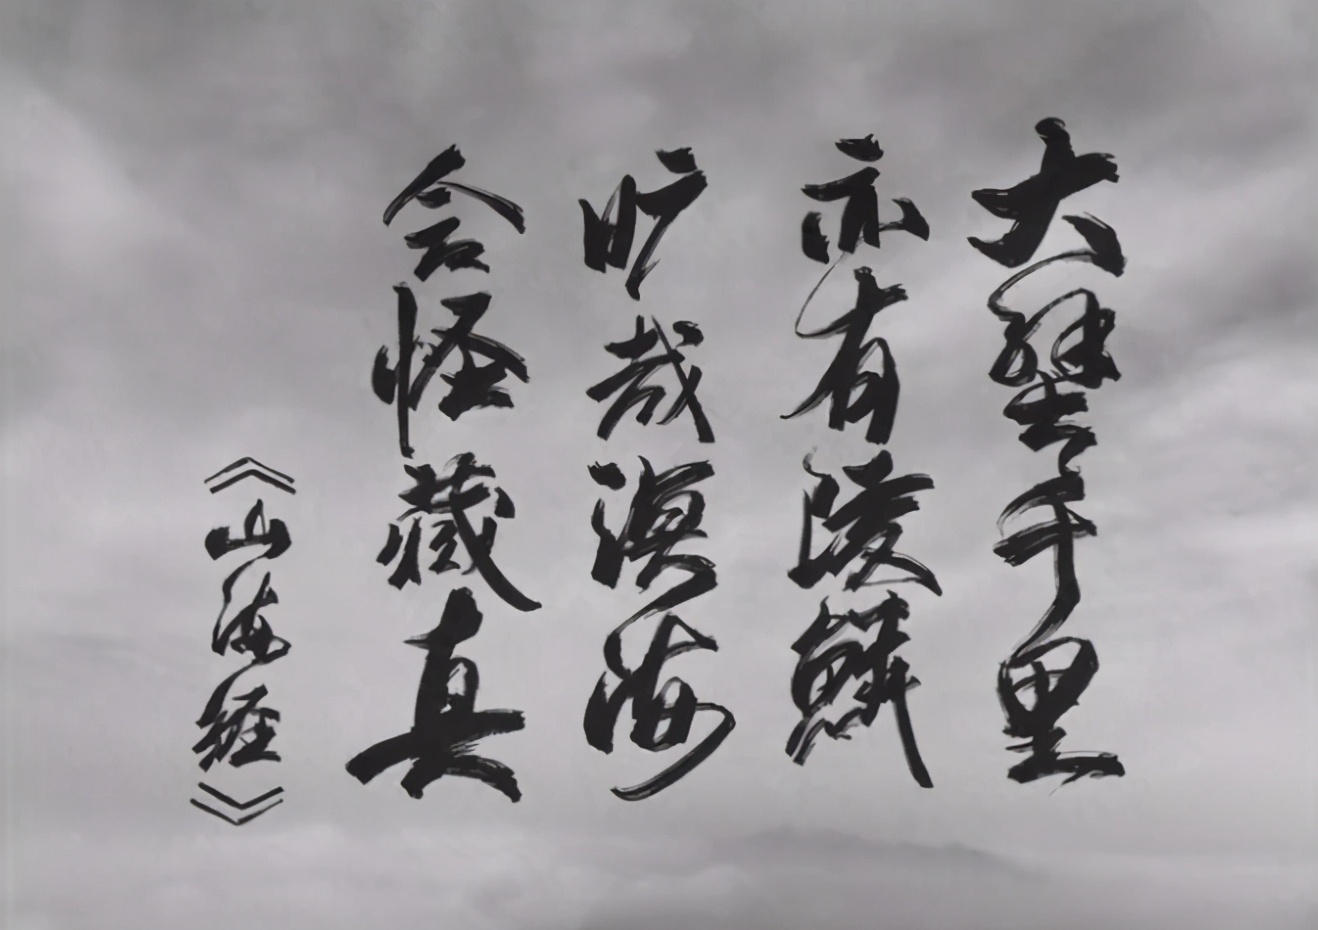 大蟹千里
亦有陵鳞
旷哉溟海
含怪藏真
《山海经》